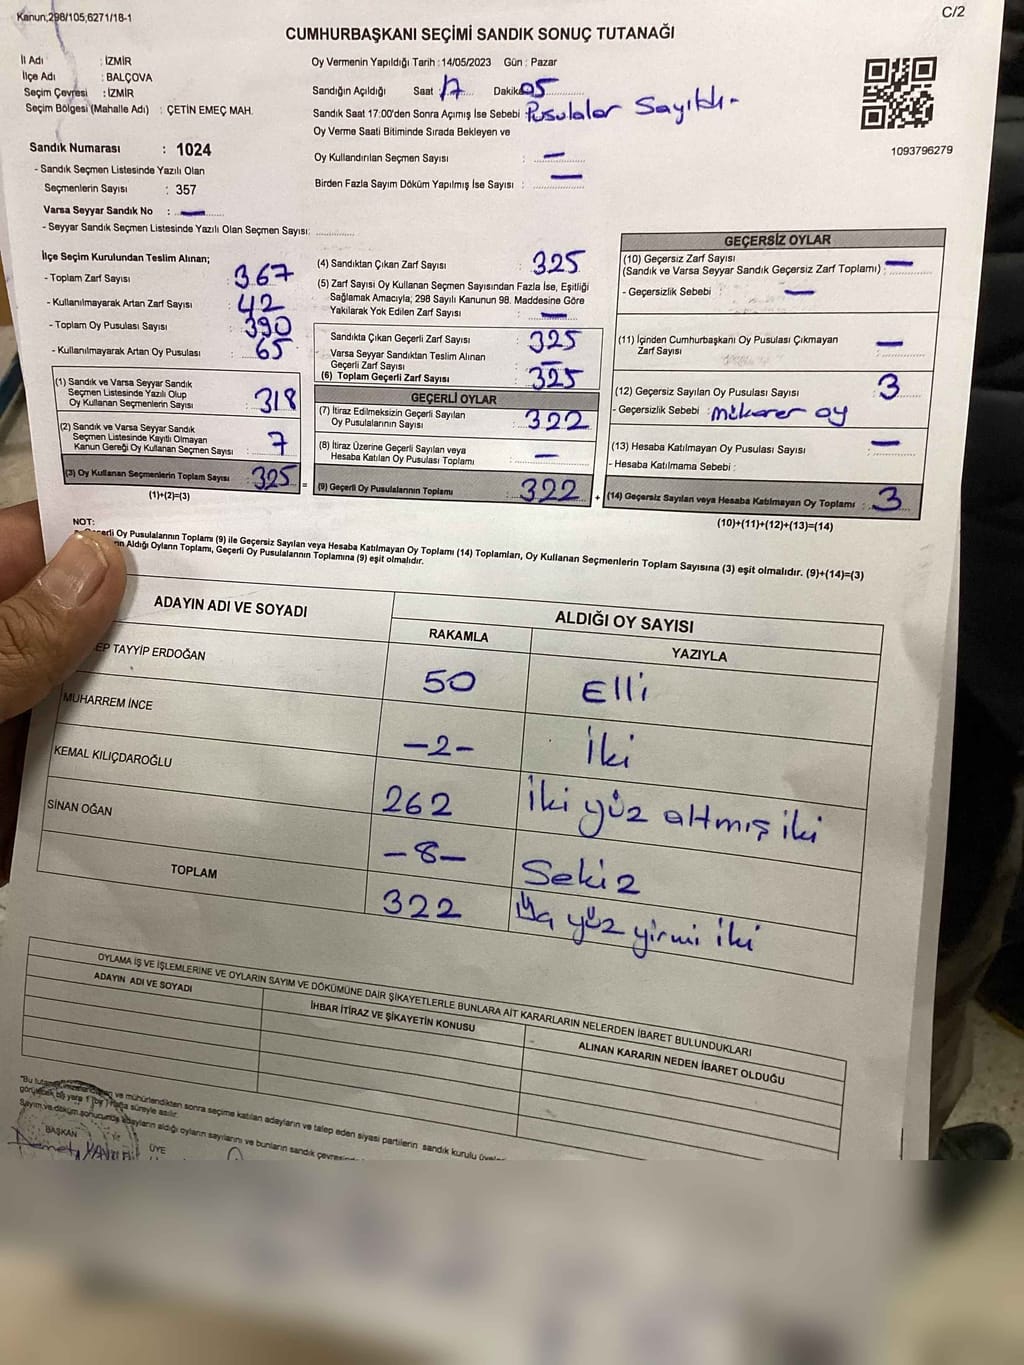 Kanun;298/105,6271/18-1
C/2
CUMHURBAŞKANI SEÇİMİ SANDIK SONUÇ TUTANAĞI
İl Adı : İZMİR
İlçe Adı : BALÇOVA
Seçim Çevresi : İZMİR
Seçim Bölgesi (Mahalle Adı) : ÇETİN EMEÇ MAH.
Oy Vermenin Yapıldığı Tarih :14/05/2023 Gün : Pazar
Sandığın Açıldığı Saat 17 Dakika 05
Sandık Saat 17:00'den Sonra Açımış İse Sebebi : Pusulalar Sayıldı-
Oy Verme Saati Bitiminde Sırada Bekleyen ve
Oy Kullandırılan Seçmen Sayısı : —
Birden Fazla Sayım Döküm Yapılmış İse Sayısı : —
1093796279
Sandık Numarası : 1024
- Sandık Seçmen Listesinde Yazılı Olan
Seçmenlerin Sayısı : 357
Varsa Seyyar Sandık No : —
- Seyyar Sandık Seçmen Listesinde Yazılı Olan Seçmen Sayısı:
İlçe Seçim Kurulundan Teslim Alınan;
- Toplam Zarf Sayısı : 367
- Kullanılmayarak Artan Zarf Sayısı : 42
- Toplam Oy Pusulası Sayısı : 390
- Kullanılmayarak Artan Oy Pusulası : 65
(1) Sandık ve Varsa Seyyar Sandık
Seçmen Listesinde Yazılı Olup
Oy Kullanan Seçmenlerin Sayısı : 318
(2) Sandık ve Varsa Seyyar Sandık
Seçmen Listesinde Kayıtlı Olmayan
Kanun Gereği Oy Kullanan Seçmen Sayısı : 7
(3) Oy Kullanan Seçmenlerin Toplam Sayısı : 325
(1)+(2)=(3)
=
(4) Sandıktan Çıkan Zarf Sayısı : 325
(5) Zarf Sayısı Oy Kullanan Seçmen Sayısından Fazla İse, Eşitliği
Sağlamak Amacıyla, 298 Sayılı Kanunun 98. Maddesine Göre
Yakılarak Yok Edilen Zarf Sayısı : —
Sandıkta Çıkan Geçerli Zarf Sayısı : 325
Varsa Seyyar Sandıktan Teslim Alınan
Geçerli Zarf Sayısı : —
(6) Toplam Geçerli Zarf Sayısı : 325
GEÇERLİ OYLAR
(7) İtiraz Edilmeksizin Geçerli Sayılan
Oy Pusulalarının Sayısı : 322
(8) İtiraz Üzerine Geçerli Sayılan veya
Hesaba Katılan Oy Pusulası Toplamı : —
(9) Geçerli Oy Pusulalarının Toplamı : 322
+
GEÇERSİZ OYLAR
(10) Geçersiz Zarf Sayısı
(Sandık ve Varsa Seyyar Sandık Geçersiz Zarf Toplamı) : —
- Geçersizlik Sebebi : —
(11) İçinden Cumhurbaşkanı Oy Pusulası Çıkmayan
Zarf Sayısı : —
(12) Geçersiz Sayılan Oy Pusulası Sayısı : 3
- Geçersizlik Sebebi : mükerer oy
(13) Hesaba Katılmayan Oy Pusulası Sayısı : —
- Hesaba Katılmama Sebebi :
(14) Geçersiz Sayılan veya Hesaba Katılmayan Oy Toplamı : 3
(10)+(11)+(12)+(13)=(14)
NOT:
Oy Pusulalarının Toplamı (9) ile Geçersiz Sayılan veya Hesaba Katılmayan Oy Toplamı (14) Toplamları, Oy Kullanan Seçmenlerin Toplam Sayısına (3) eşit olmalıdır. (9)+(14)=(3)
Aldığı Oyların Toplamı, Geçerli Oy Pusulalarının Toplamına (9) eşit olmalıdır.
ADAYIN ADI VE SOYADI
ALDIĞI OY SAYISI
RAKAMLA YAZIYLA
EP TAYYİP ERDOĞAN 50 Elli
MUHARREM İNCE -2- İki
KEMAL KILIÇDAROĞLU 262 İki yüz altmış iki
SİNAN OĞAN -8- Sekiz
TOPLAM 322 Üç yüz yirmi iki
OYLAMA İŞ VE İŞLEMLERİNE VE OYLARIN SAYIM VE DÖKÜMÜNE DAİR ŞİKAYETLERLE BUNLARA AİT KARARLARIN NELERDEN İBARET BULUNDUKLARI
ADAYIN ADI VE SOYADI
İHBAR İTİRAZ VE ŞİKAYETİN KONUSU
ALINAN KARARIN NEDEN İBARET OLDUĞU
ve mühürlendikten sonra seçime katılan adayların ve talep eden siyasi partilerin sandık kurulu
süreyle asılır.
Sayım ve döküm sonucunda adayların aldığı oyların sayılarını ve bunların sandık
BAŞKAN
ÜYE